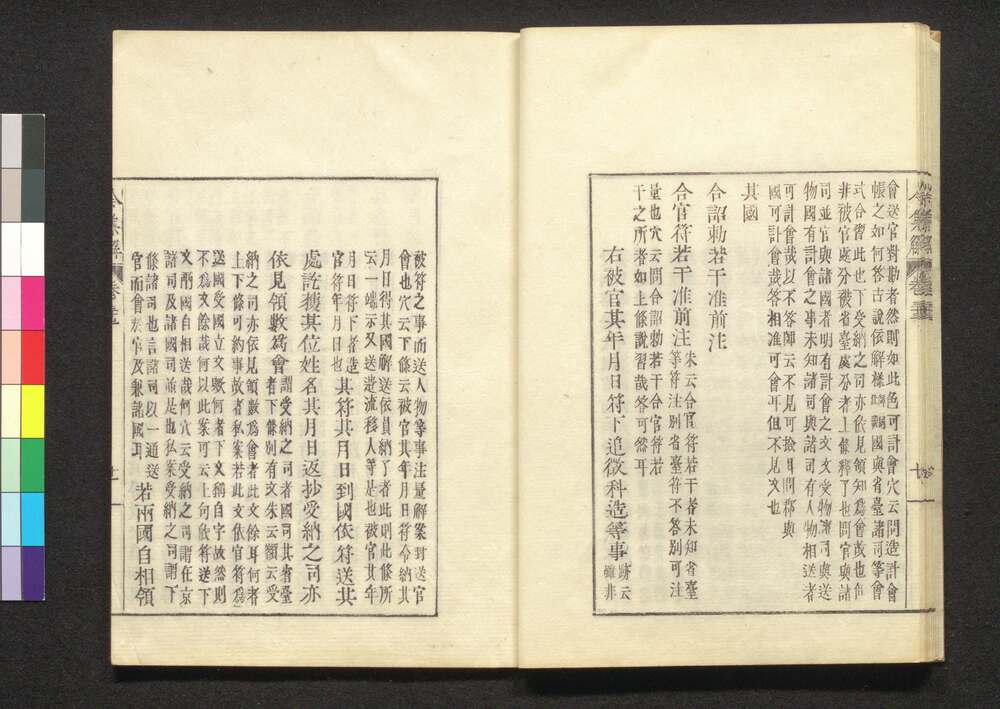 會送官對勘者然則如此色可計會穴云問造計會
帳之如何答古說依解樣 國與省臺諸司等會
式合皆此也下受納之司亦依見領知爲會哉也作
非被官處分被省臺處分者上條釋了也問官與諸
司並官與諸國者明有計會之文文受物諸司與送
物國有計會之事未知諸司與諸司有人物相送者
可計會哉以不答師云不見可撿耳問郡與
國可計會哉答相准可會耳但不見文也
其國
合詔勅若干准前注
合官符若干准前注
朱云合官符若干者未知省臺
等符注別省臺符不答別可注
量也穴云問合詔勅若干合官符若
干之所者如上條說習哉答可然耳
右被官其年月日符下追徵科造等事
跡云
雖非
被符之事而送人物等事法量解案到送官
會也穴云下條云被官其年月日符令納其
月日得其國解送依員納了者此則此條所
云一端示又送逃流移人等是也被官其年
月日符下者造
官符年月日也
其符其月日到國依符送其
處訖獲其位姓名其月日返抄受納之司亦
依見領數爲會
謂受納之司者國司其省臺
者下條別有文朱云領云受
納之司亦依見領數爲會者此文餘耳何者
上下條可約事故者私案若此文依官符爲
送國受國立文歟何者下文稱自字故然則
不爲文餘哉何以此案可云上句依符送下
文酌國自相送哉何穴云受納之司謂在京
諸司及諸國司並是也私案受納之司謂下
條諸司也言諸司以一通送
官而會於官及報諸國耳
若兩國自相領